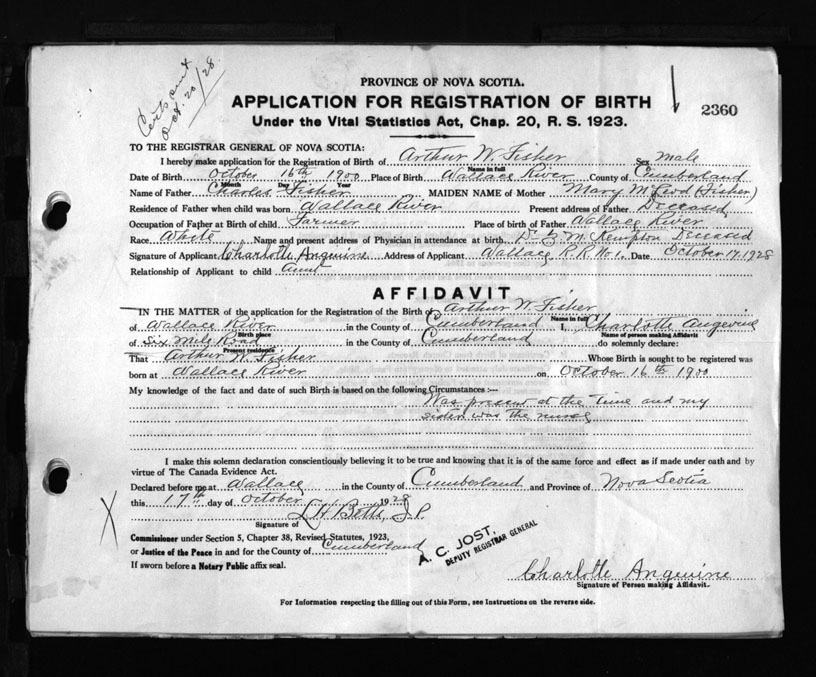 Cert. sent
Oct. 20/28
PROVINCE OF NOVA SCOTIA.
APPLICATION FOR REGISTRATION OF BIRTH
2360
Under the Vital Statistics Act, Chap. 20, R. S. 1923.
TO THE REGISTRAR GENERAL OF NOVA SCOTIA:
I hereby make application for the Registration of Birth of Arthur W. Fisher Sex male
Name in full
Date of Birth October 16th 1900 Place of Birth Wallace River County of Cumberland
Month Day Year
Name of Father Charles Fisher MAIDEN NAME of Mother Mary McLeod (Fisher)
Residence of Father when child was born Wallace River Present address of Father Deceased
Occupation of Father at Birth of child Farmer Place of birth of Father Wallace River
Race White Name and present address of Physician in attendance at birth Dr. Kempton Deceased
Signature of Applicant Charlotte Angevine Address of Applicant Wallace R.R. No 1. Date October 17, 1928
Relationship of Applicant to child aunt
AFFIDAVIT
IN THE MATTER of the application for the Registration of the Birth of Arthur W. Fisher
Name in full
of Wallace River in the County of Cumberland I, Charlotte Angevine
Birth place Name of person making Affidavit
of Six Mile Road in the County of Cumberland do solemnly declare:
Present residence
That Arthur W. Fisher Whose Birth is sought to be registered was
born at Wallace River on October 16th 1900
My knowledge of the fact and date of such Birth is based on the following Circumstances :—
Was present at the time and my
sister was the nurse
I make this solemn declaration conscientiously believing it to be true and knowing that it is of the same force and effect as if made under oath and by
virtue of The Canada Evidence Act.
Declared before me at Wallace in the County of Cumberland and Province of Nova Scotia
this 17th day of October 1928
J.P.
Signature of
Commissioner under Section 5, Chapter 38, Revised Statutes, 1923,
or Justice of the Peace in and for the County of Cumberland
If sworn before a Notary Public affix seal.
A. C. JOST,
DEPUTY REGISTRAR GENERAL
Charlotte Angevine
Signature of Person making Affidavit.
For Information respecting the filling out of this Form, see Instructions on the reverse side.